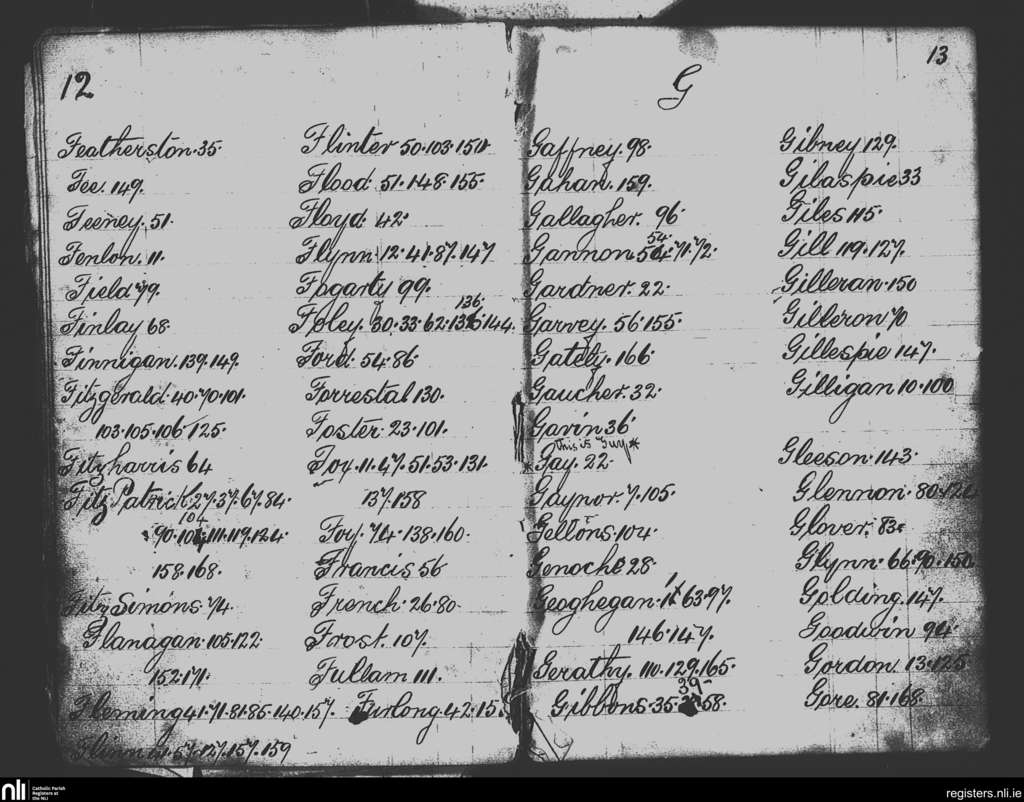 12
Featherston. 35.
Fee. 149.
Feeney. 51.
Fenlon. 11.
Field 79.
Finlay 68.
Finnigan. 139. 149.
Fitzgerald. 40. 70. 101.
103. 105. 106. 125.
Fitzharris 64
Fitz Patrick. 27. 37. 67. 84.
104
90. 111. 119. 124.
158. 168.
Fitz Simons. 74.
Flanagan. 105. 122.
152. 171.
Fleming 41. 71. 81. 85. 140. 157.
57. 127. 157. 159
Flinter 50. 103. 150.
Flood. 51. 148. 155.
Floyd. 42.
Flynn. 12. 41. 87. 147
Fogarty 99.
136.
Foley. 30. 33. 62. 144.
Ford. 54. 86
Forrestal 130.
Foster. 23. 101.
Fox. 11. 47. 51. 53. 131.
137. 158
Foy. 74. 138. 160.
Francis 56
French. 26. 80.
Frost. 107.
Fullam 111.
Furlong. 42.
G
13
Gaffney. 98.
Gahan. 159.
Gallagher. 96.
54.
Gannon. 71. 72.
Gardner. 22.
Garvey. 56. 155.
Gately. 166.
Gaucher. 32.
Gavin 36.
This is Guy *
* Gay. 22.
Gaynor. 7. 105.
Gellons. 104.
Genoche 28.
Geoghegan. 63. 97.
146. 147.
Gerathy. 110. 129. 165.
39
Gibbons. 35. 58.
Gibney 129.
Gilaspie 33
Giles 115.
Gill 119. 127.
Gilleran. 150
Gilleron 70
Gillespie 147.
Gilligan 10. 100
Gleeson. 143.
Glennon. 80. 124
Glover. 83.
Glynn. 66. 90. 150
Golding. 147.
Goodwin 94.
Gordon. 13. 125
Gore. 81. 168.
nli
Catholic Parish
Registers at
the NLI
registers.nli.ie